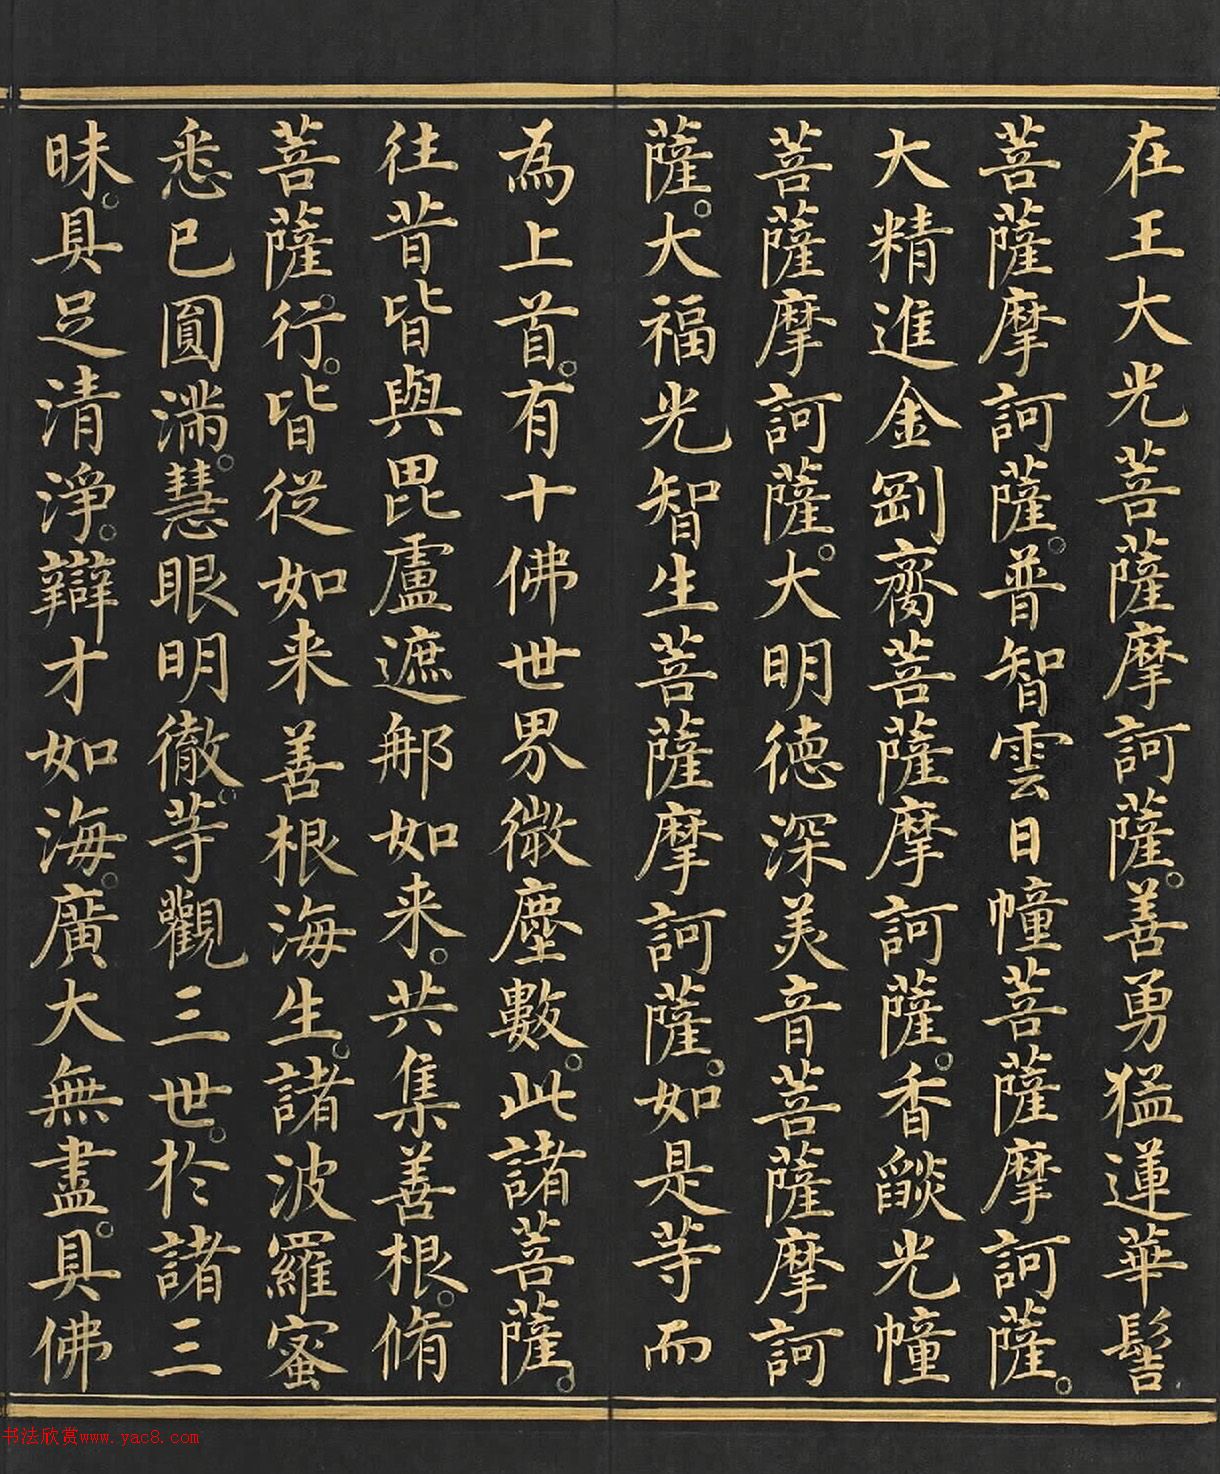 在王大光菩薩摩訶薩。善勇猛蓮華髻
菩薩摩訶薩。普智雲日幢菩薩摩訶薩。
大精進金剛齎菩薩摩訶薩。香燄光幢
菩薩摩訶薩。大明徳深美音菩薩摩訶
薩。大福光智生菩薩摩訶薩。如是等而
為上首。有十佛世界微塵數。此諸菩薩。
往昔皆與毘盧遮那如来。共集善根。脩
菩薩行。皆從如来善根海生。諸波羅蜜
悉已圓滿。慧眼明徹。等觀三世。於諸三
昧。具足清淨。辯才如海。廣大無盡。具佛
书法欣赏www.yac8.com